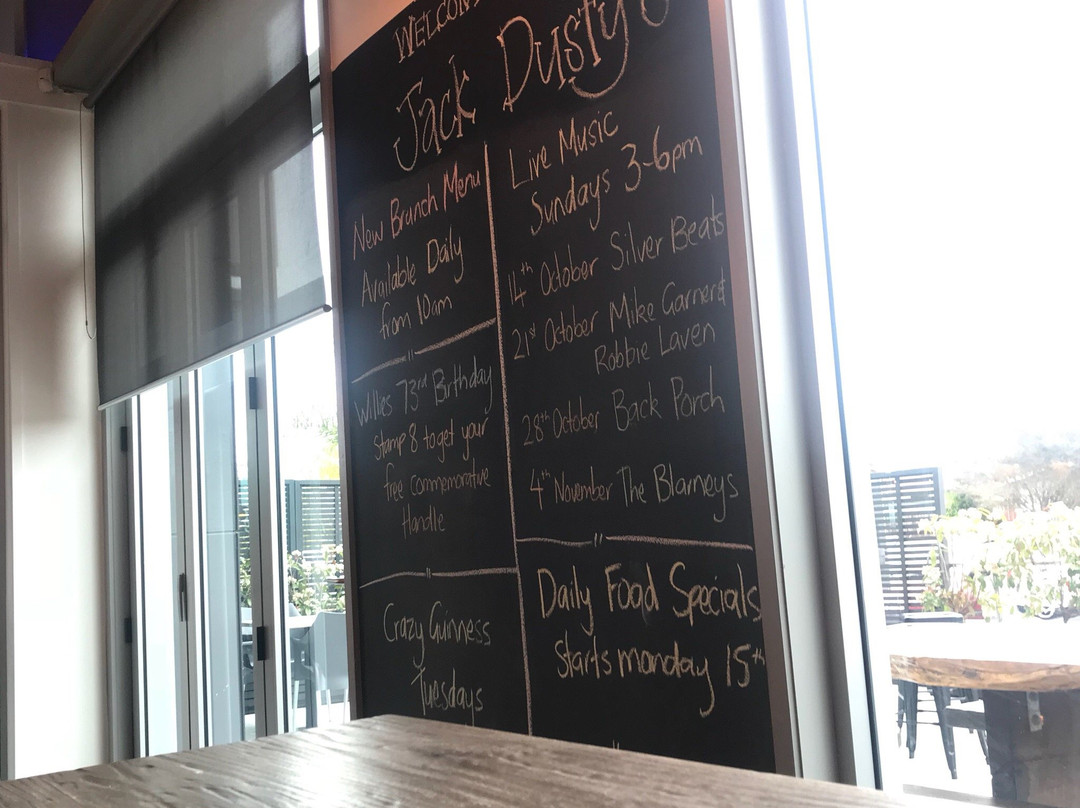 WELCOM
Jack Dusty's
New Brunch Menu
Available Daily
from 10am
Willies 73rd Birthday
Stamp 8 to get your
free commemorative
Handle
Crazy Guinness
Tuesdays
Live Music
Sundays 3-6pm
14th October Silver Beats
21st October Mike Garner &
Robbie Laven
28th October Back Porch
4th November The Blarneys
Daily Food Specials
Starts monday 15th